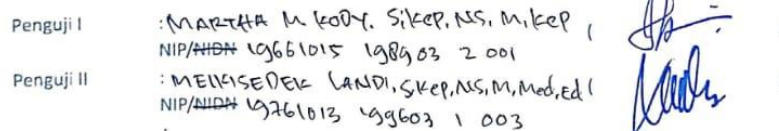 Penguji I : MARTHA M KODY. S.kep, NS, M.kep (
NIP/NIDN 19661015 198903 2 001
Penguji II : MELKISEDEK LANDI, S.kep, NS, M, Med, Ed (
NIP/NIDN 19761013 199603 1 003